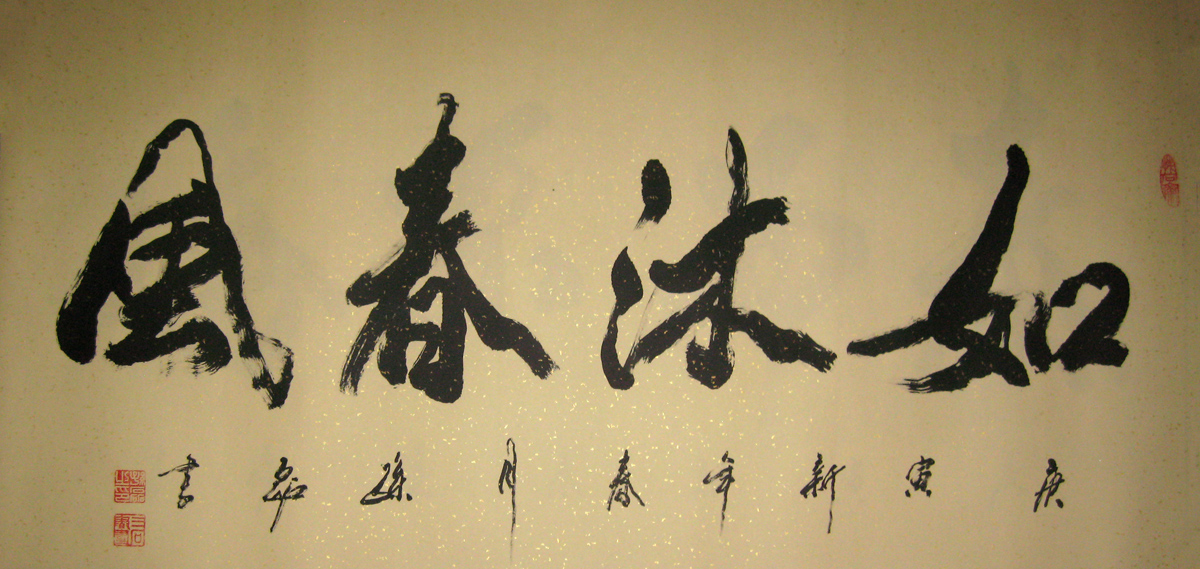 如沐春風
庚寅新年春月 書